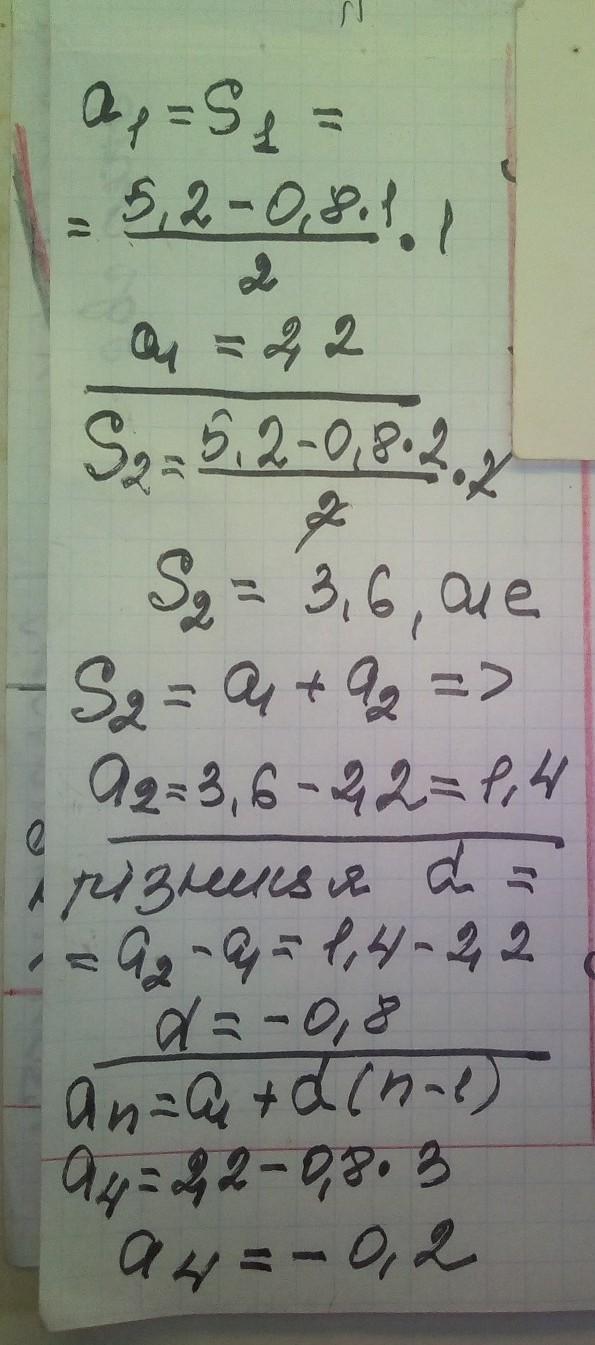 a₁ = S₁ =
= (5,2 - 0,8·1)/2 · 1
a₁ = 2,2
S₂ = (5,2 - 0,8·2)/2 · 2
S₂ = 3,6, але
S₂ = a₁ + a₂ =>
a₂ = 3,6 - 2,2 = 1,4
різниця d =
= a₂ - a₁ = 1,4 - 2,2
d = -0,8
aₙ = a₁ + d(n-1)
a₄ = 2,2 - 0,8·3
a₄ = -0,2